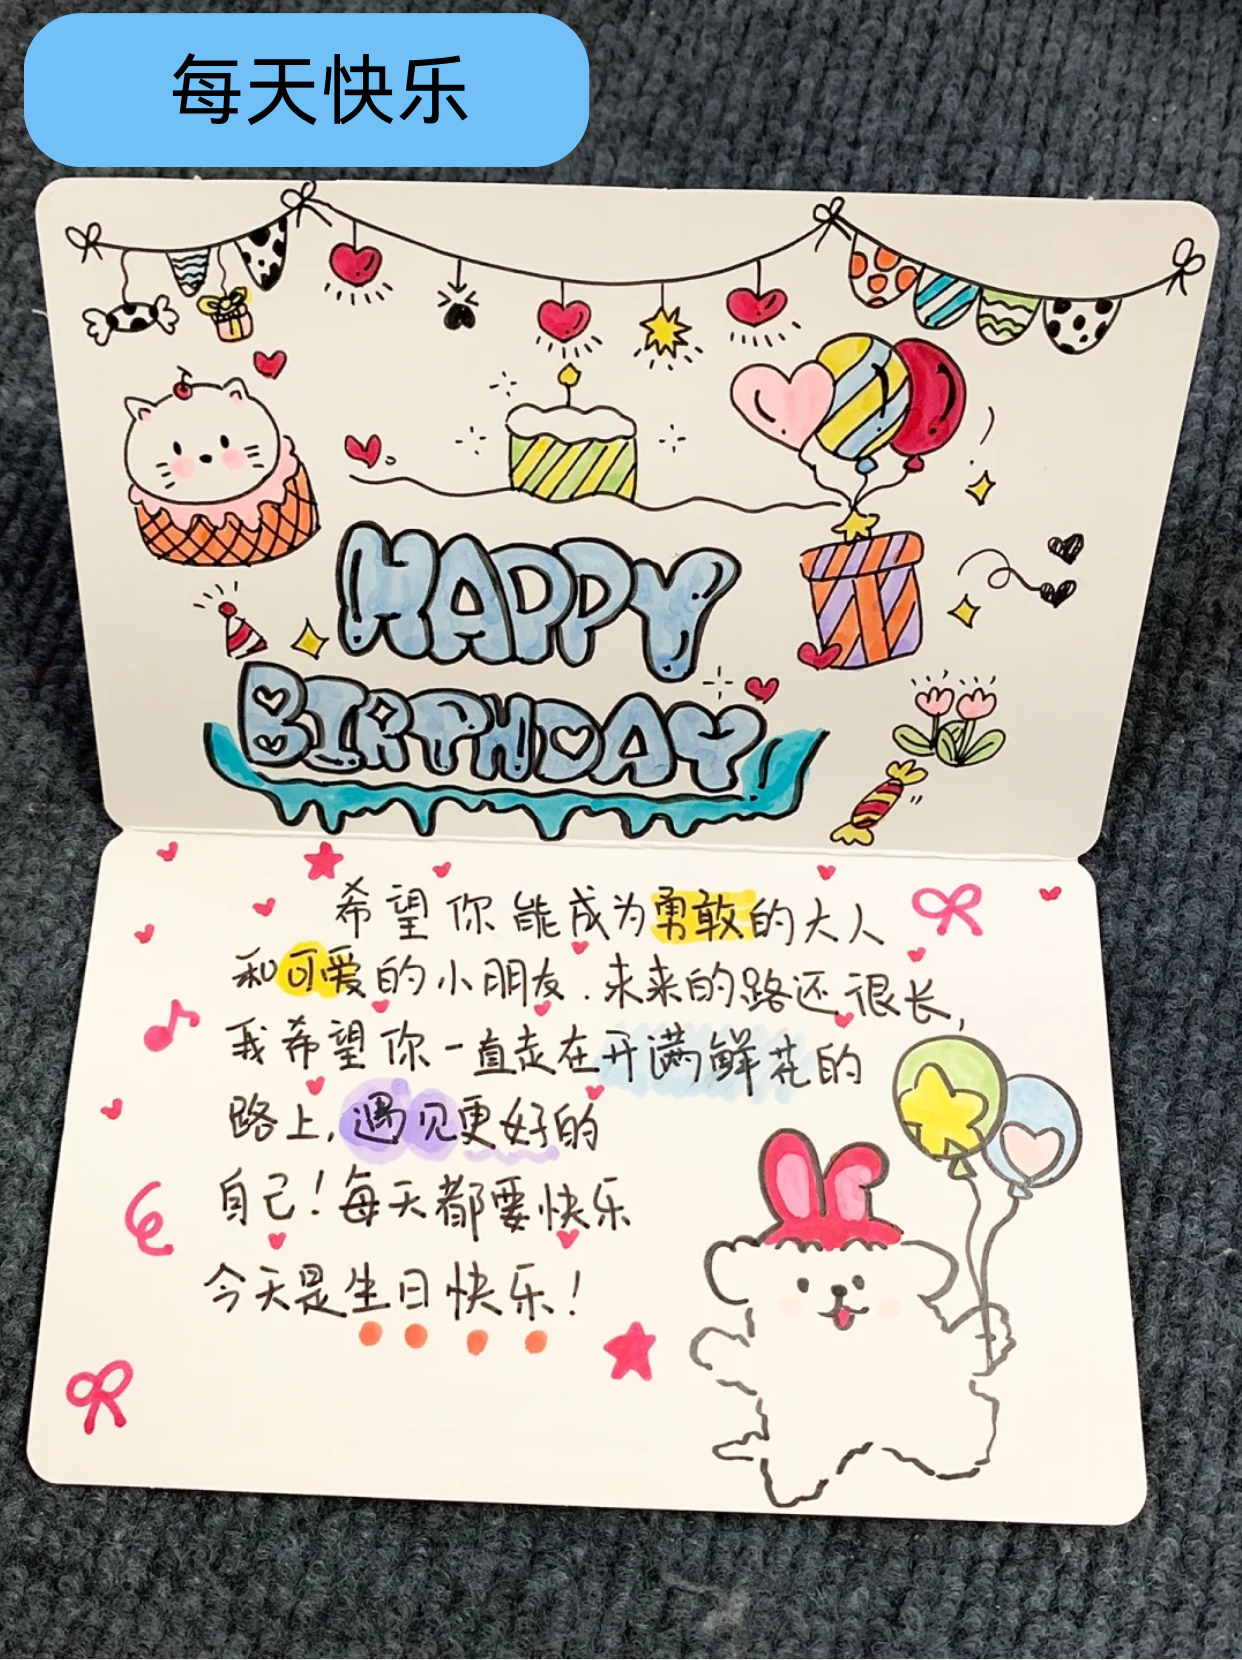 每天快乐
HAPPY
BIRTHDAY
希望你能成为勇敢的大人
和可爱的小朋友.未来的路还很长,
我希望你一直走在开满鲜花的
路上,遇见更好的
自己!每天都要快乐
今天是生日快乐!